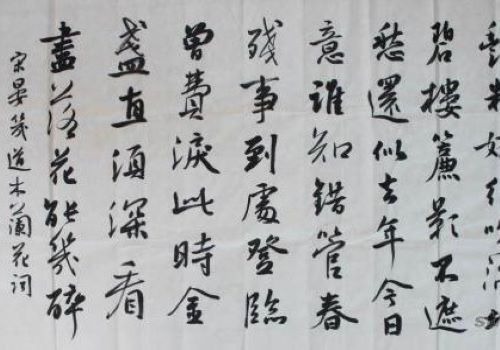 碧樓簾影不遮
愁還似去年今日
意誰知錯管春
残事到處登臨
曾費淚此時金
盞直須深看
盡落花能幾醉
宋晏幾道木蘭花詞